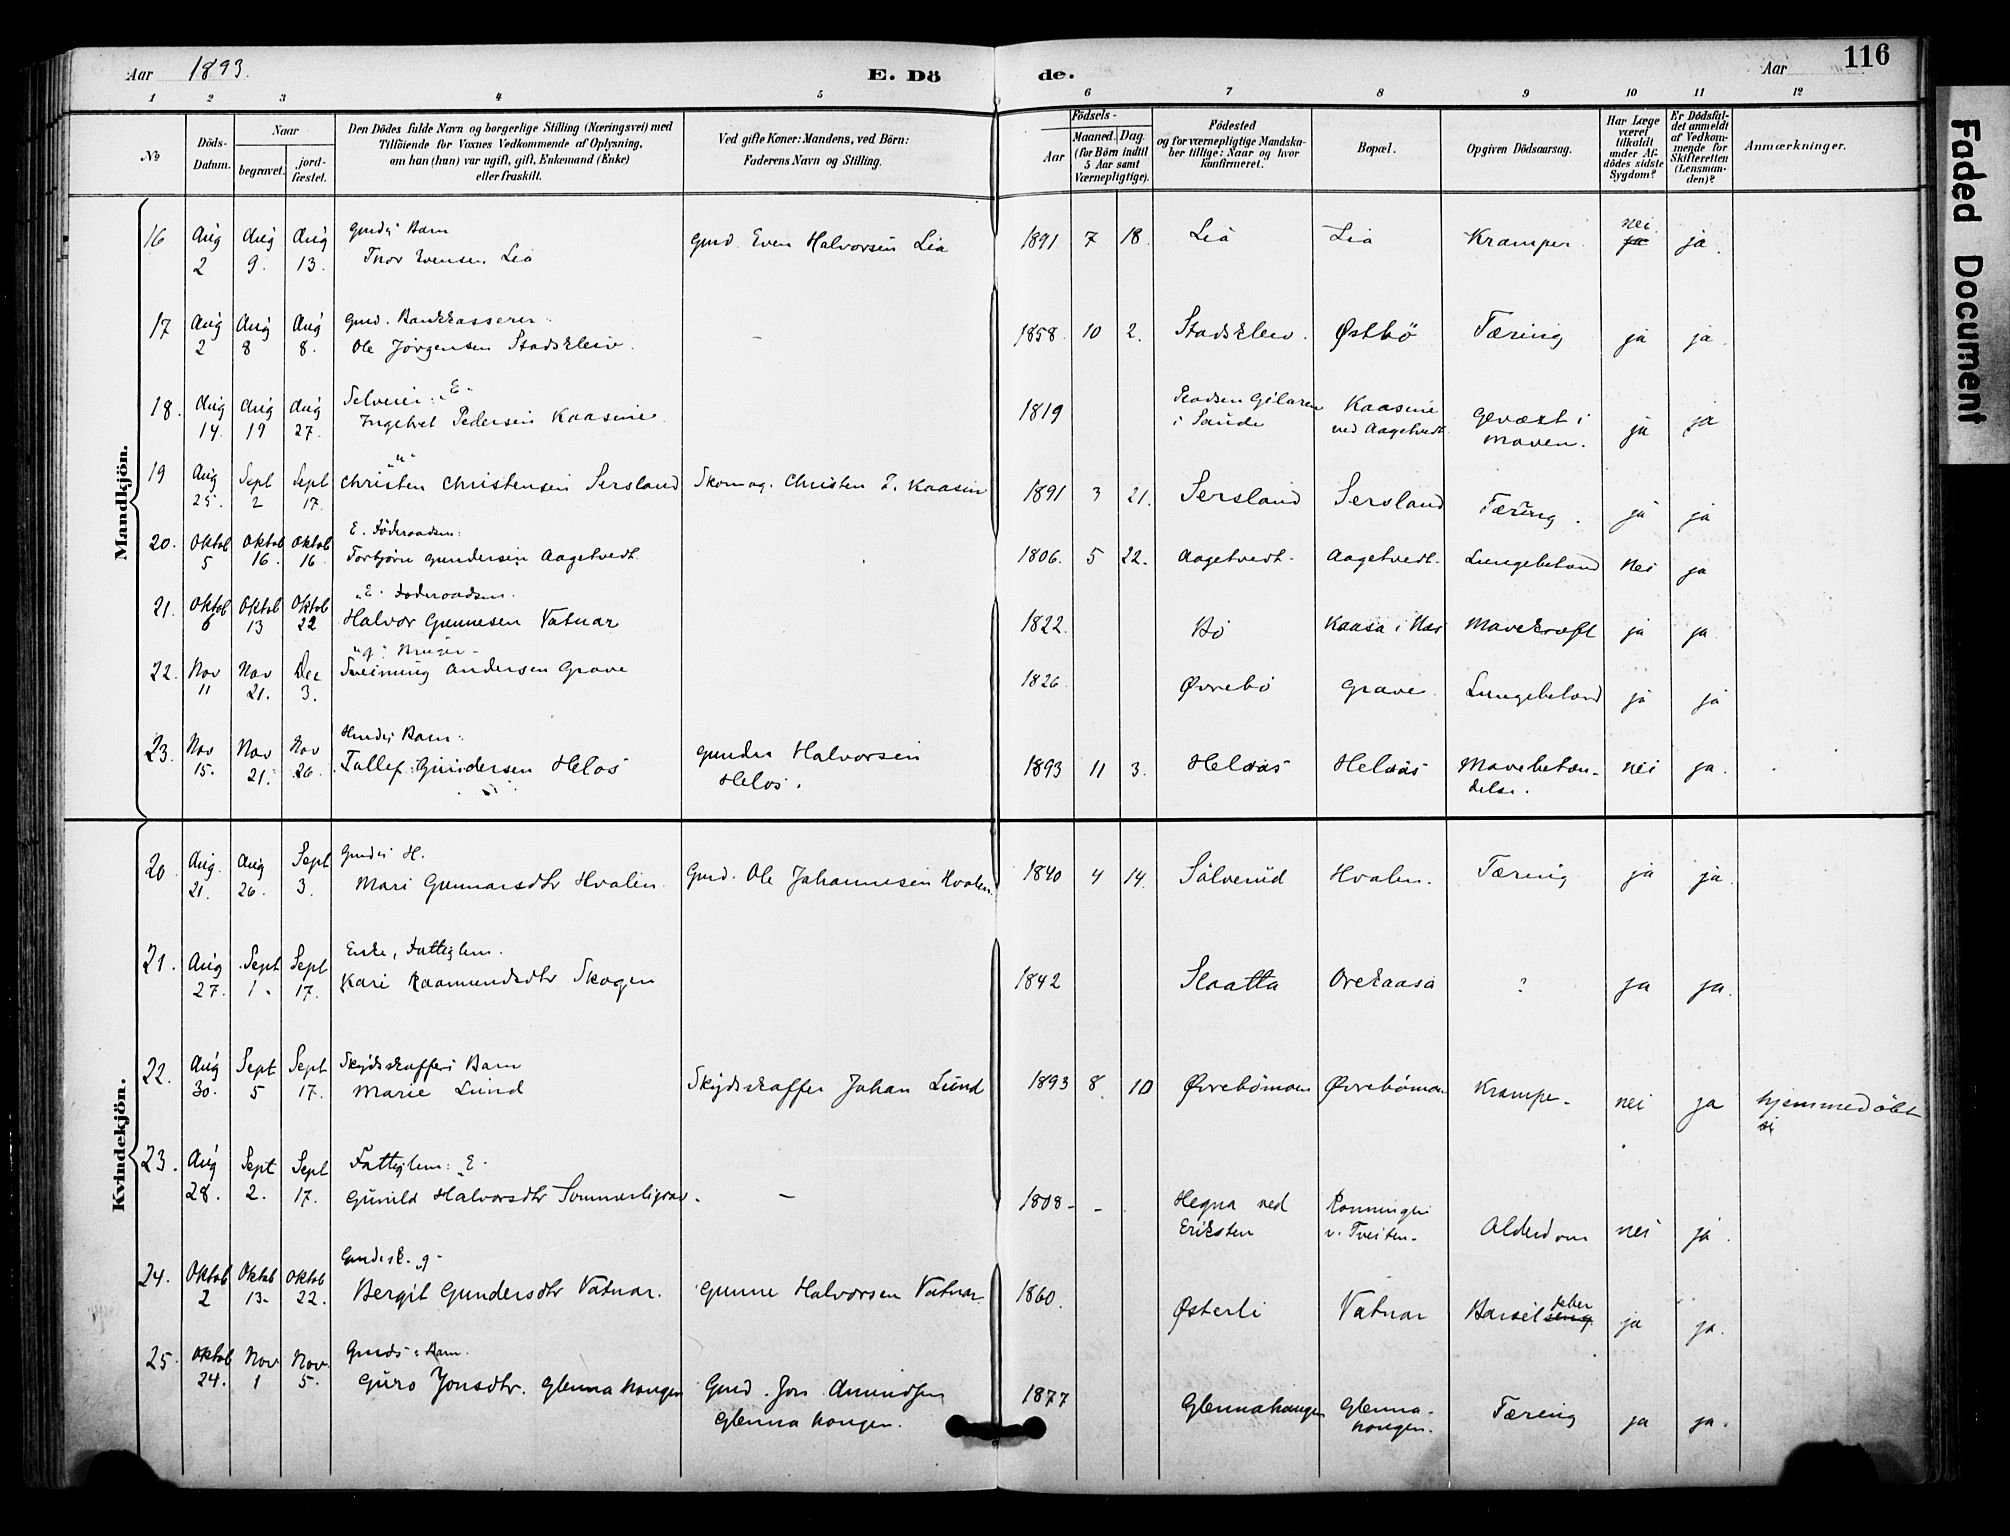 Aar 1893.
E. Dö
de.
Aar
116
1 2 3 4 5 6 7 8 9 10 11 12
No
Döds-Datum.
Naar
begravet.
jord-fæstet.
Den Dödes fulde Navn og borgerlige Stilling (Næringsvei) med
Tilföiende for Voxnes Vedkommende af Oplysning,
om han (hun) var ugift, gift, Enkemand (Enke)
eller fraskilt.
Ved gifte Koner: Mandens, ved Börn:
Faderens Navn og Stilling.
Födsels-
Aar
Maaned. Dag.
(for Börn indtil
5 Aar samt
Værnepligtige).
Födested
og for værnepligtige Mandska-
ber tillige: Naar og hvor
konfirmeret.
Bopæl.
Opgiven Dödsaarsag.
Har Læge
været
tilkaldt
under Af-
dödes sidste
Sygdom?
Er Dödsfal-
det anmeldt
af Vedkom-
mende for
Skifteretten
(Lensman-
den)?
Anmærkninger.
Faded Document
Mandkjön.
16 Aug 2 Aug 9. Aug 13. Gmds Barn
Thor Evensen Lia Gmd. Even Halvorsen Lia 1891 7 18. Lia Lia Kramper. nei ja ja.
17 Aug 2 Aug 8 Aug 8. Gmd. Bankkasserer
Ole Jørgensen Stadskleiv. - 1858 10 2. Stadskleiv. Østbö Tæring ja ja.
18. Aug 14. Aug 19 Aug 27. Selveier "E"
Ingebret Pedersen Kaasine 1819 i Saude Kaasine ved Aagetvedt Gevæxt i Maven. ja ja
19 Aug 25. Sept 2 Sept 17. "u"
Christen Christensen Sersland Skomag. Christen Kaasin 1891 3 21. Sersland Sersland Tæring. ja ja
20. Oktob 5 Oktob 16. Oktob 16. E. Föderaadsm.
Torbjörn Gundersen Aagetvedt. 1806. 5 22. Aagetvedt. Aagetvedt. Lungebetænd nei ja
21. Oktob 6 Oktob 13 Oktob 22 "E. Föderaadsm.
Halvor Gunnesen Vatnar 1822. Bö Kaasa i Nes Mavekræft ja ja
22. Nov 11 Nov 21. Dec 3. "g" Bruger
Sveinung Andersen Grave 1826 Øvrebö Grave. Lungebetænd ja ja
23. Nov 15. Nov 21. Nov 26. Husds Barn.
Tallef Gundersen Helos Gunder Halvorsen Helos. 1893 11 3. Helaas Helaas Mavebetæn-delse. nei ja.
Kvindekjön.
20. Aug. 21. Aug 26. Sept 3. Gmds H.
Mari Gunnarsdtr Hvalen. Gmd. Ole Johannesen Hvalen. 1840 4 14. Sölverud Hvalen. Tæring ja ja.
21. Aug 27. Sept 1. Sept 17. Enke, Fattiglem.
Kari Raamundsdtr Skogen 1842 Slaatta Orekaasa ? ja ja.
22. Aug 30. Sept 5 Sept 17. Skydsskaffers Barn
Marie Lund Skydsskaffer Johan Lund 1893 8. 10 Øvrebömoen Øvrebömoen Krampe. nei ja hjemmedöbt
23. Aug 28. Sept 2. Sept 17. Fattiglem: E.
Gunild Halvorsdtr Sommerligrav. - 1808 - - Hegna ved Eriksten Rönningen v. Tveiten. Alderdom nei ja.
24. Oktob 2 Oktob 13. Oktob 22. Gmdsk. g.
Bergit Gundersdtr Vatnar. Gunne Halvorsen Vatnar 1860. Østerli Vatnar Barselseng feber ja ja.
25. Oktob 24. Nov 1 Nov. 5. Gmds Barn.
Guro Jonsdtr. Glennahaugen Gmd. Jon Amundsen Glennahaugen. 1877 Glennahaugen Glenna-haugen. Tæring ja ja.